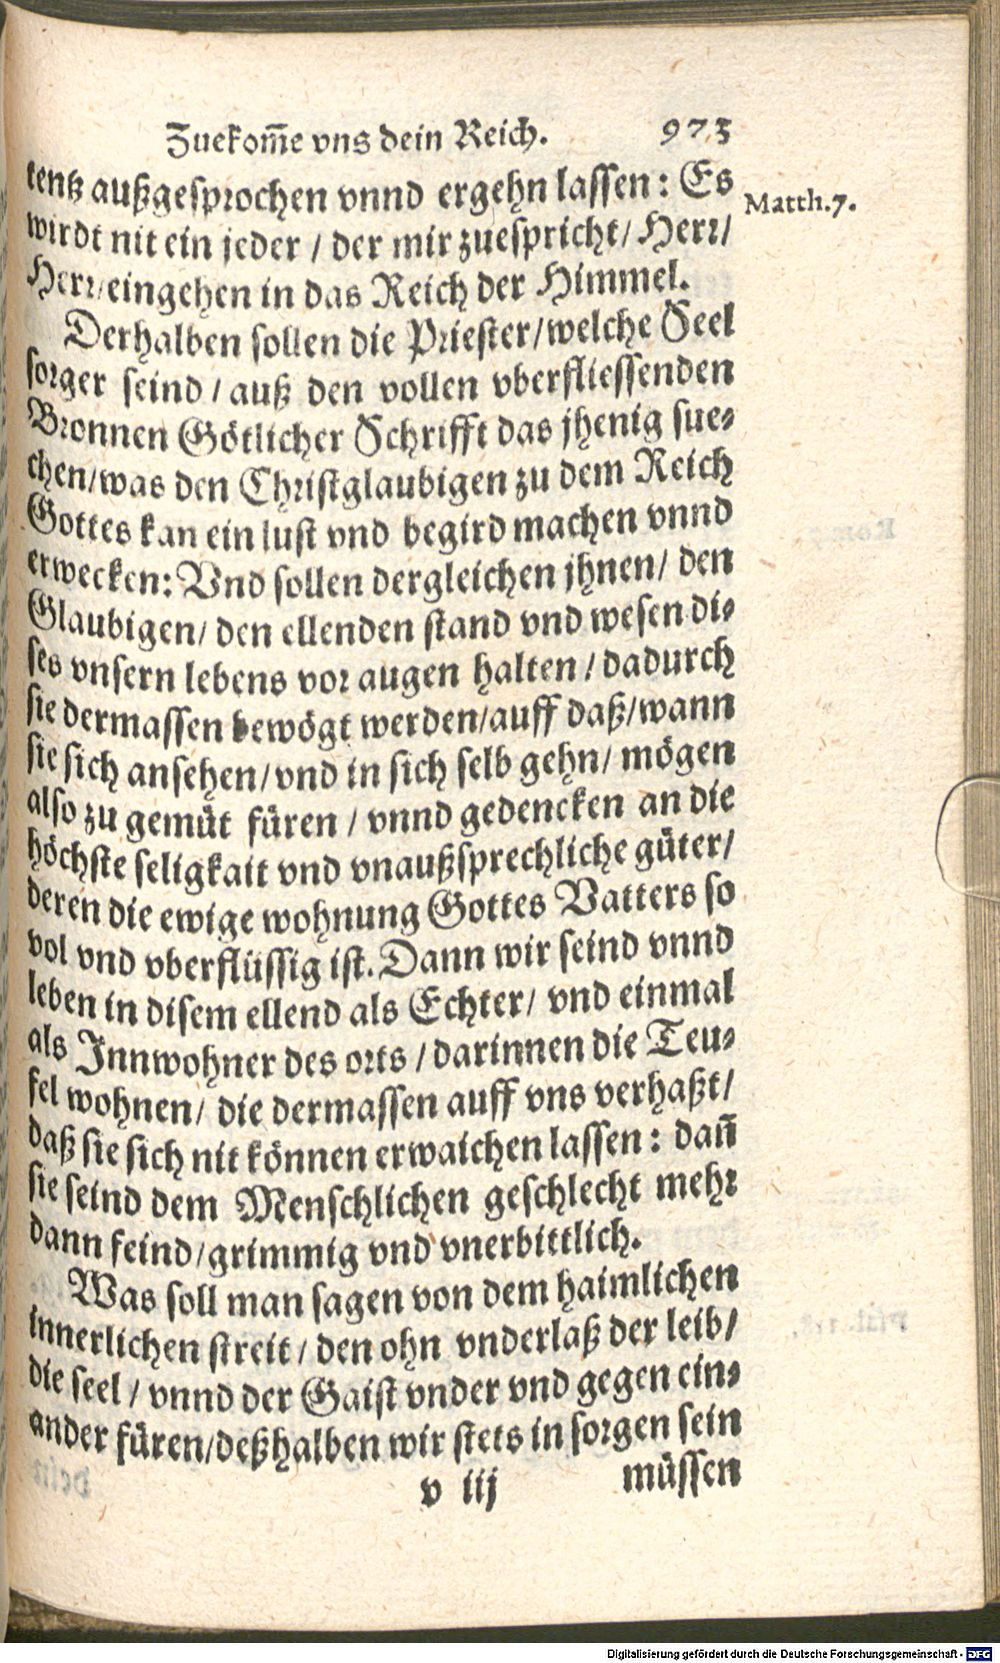 Zuekom̃e vns dein Reich. 973
tentz außgesprochen vnnd ergehn lassen: Es
Matth.7.
wirdt nit ein jeder / der mir zuespricht / Herr /
Herr / eingehen in das Reich der Himmel.
Derhalben sollen die Priester / welche Seel
sorger seind / auß den vollen vberfliessenden
Bronnen Götlicher Schrifft das jhenig sue⸗
chen / was den Christglaubigen zu dem Reich
Gottes kan ein lust vnd begird machen vnnd
erwecken: Vnd sollen dergleichen jhnen / den
Glaubigen / den ellenden stand vnd wesen di⸗
ses vnsern lebens vor augen halten / dadurch
sie dermassen bewögt werden / auff daß / wann
sie sich ansehen / vnd in sich selb gehn / mögen
also zu gemüt füren / vnnd gedencken an die
höchste seligkait vnd vnaußsprechliche güter /
deren die ewige wohnung Gottes Vatters so
vol vnd vberflüssig ist. Dann wir seind vnnd
leben in disem ellend als Echter / vnd einmal
als Innwohner des orts / darinnen die Teu⸗
fel wohnen / die dermassen auff vns verhaßt /
daß sie sich nit können erwaichen lassen: dañ
sie seind dem Menschlichen geschlecht mehr
dann feind / grimmig vnd vnerbittlich.
Was soll man sagen von dem haimlichen
innerlichen streit / den ohn vnderlaß der leib /
die seel / vnnd der Gaist vnder vnd gegen ein⸗
ander füren / deßhalben wir stets in sorgen sein
v iij müssen
Digitalisierung gefördert durch die Deutsche Forschungsgemeinschaft - DFG